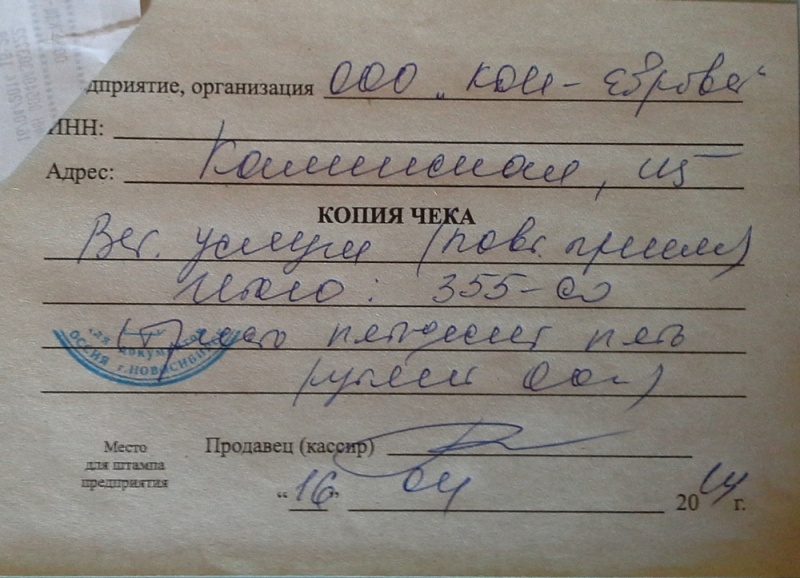 дприятие, организация ООО „КОМ-
ИНН:
Адрес: Каменская,
КОПИЯ ЧЕКА
Вет. услуги (повт. прием)
Итого: 355-00
(Триста пятьдесят пять
рублей 00 к)
для докумен
ОССИЯ г.НОВОСИБИ
Место
для штампа
предприятия
Продавец (кассир)
“16” 04 2014 г.